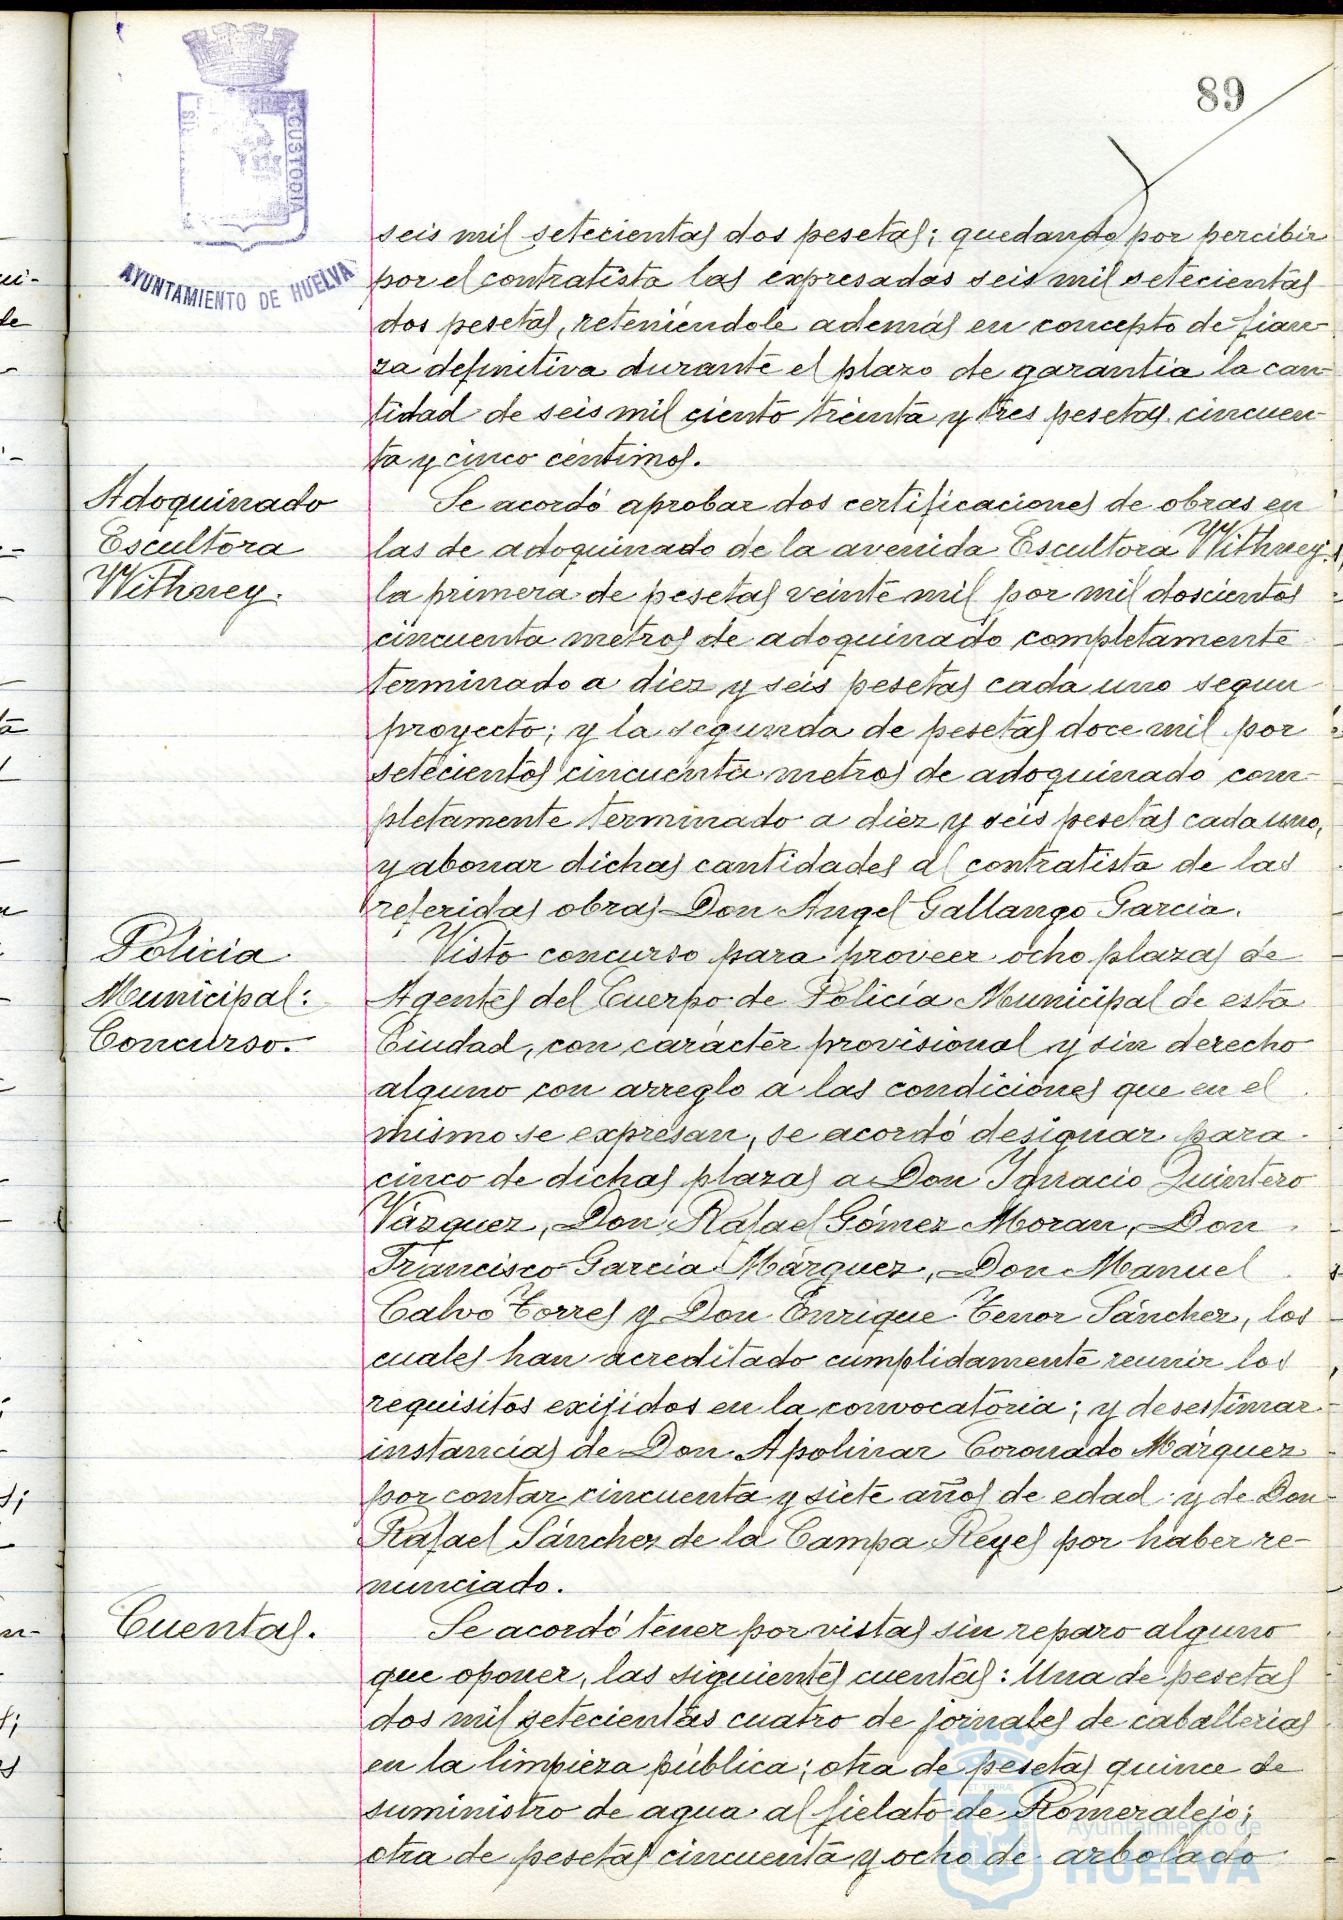 89
CUSTODIA
AYUNTAMIENTO DE HUELVA
seis mil setecientas dos pesetas; quedando por percibir
por el contratista las expresadas seis mil setecientas
dos pesetas, reteniéndole además en concepto de fian-
za definitiva durante el plazo de garantía la can-
tidad de seis mil ciento treinta y tres pesetas cincuen-
ta y cinco céntimos.
Adoquinado
Escultora
Withney.
Se acordó aprobar dos certificaciones de obras en
las de adoquinado de la avenida Escultora Withney:
la primera de pesetas veinte mil por mil doscientos
cincuenta metros de adoquinado completamente
terminado a diez y seis pesetas cada uno segun
proyecto; y la segunda de pesetas doce mil por
setecientos cincuenta metros de adoquinado com-
pletamente terminado a diez y seis pesetas cada uno,
y abonar dichas cantidades al contratista de las
referidas obras Don Angel Gallango Garcia.
Policia
Municipal:
Concurso.
Visto concurso para proveer ocho plazas de
Agentes del Cuerpo de Policía Municipal de esta
Ciudad, con carácter provisional y sin derecho
alguno con arreglo a las condiciones que en el
mismo se expresan, se acordó designar para
cinco de dichas plazas a Don Ignacio Quintero
Vázquez, Don Rafael Gómez Moran, Don
Francisco Garcia Márquez, Don Manuel
Calvo Torres y Don Enrique Tenor Sánchez, los
cuales han acreditado cumplidamente reunir los
requisitos exijidos en la convocatoria; y desestimar
instancias de Don Apolinar Coronado Márquez
por contar cincuenta y siete años de edad y de Don
Rafael Sánchez de la Campa Reyes por haber re-
nunciado.
Cuentas.
Se acordó tener por vistas sin reparo alguno
que oponer, las siguientes cuentas: Una de pesetas
dos mil setecientas cuatro de jornales de caballerias
en la limpieza pública; otra de pesetas quince de
suministro de agua al fielato de Romeralejo;
otra de pesetas cincuenta y ocho de arbolado
Ayuntamiento de
HUELVA